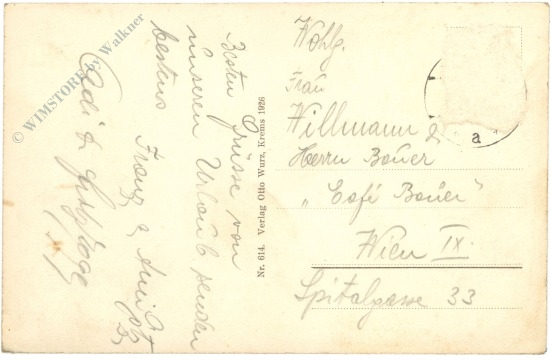 Besten Grüsse von
unseren Urlaub senden
bestens Franz &
Nr. 614. Verlag Otto Wurz, Krems 1926
Wohlg.
Frau
Willmann &
Herrn Bauer
„Café Bauer"
Wien IX.
Spitalgasse 33
a
© WIMSTORE by Walkner